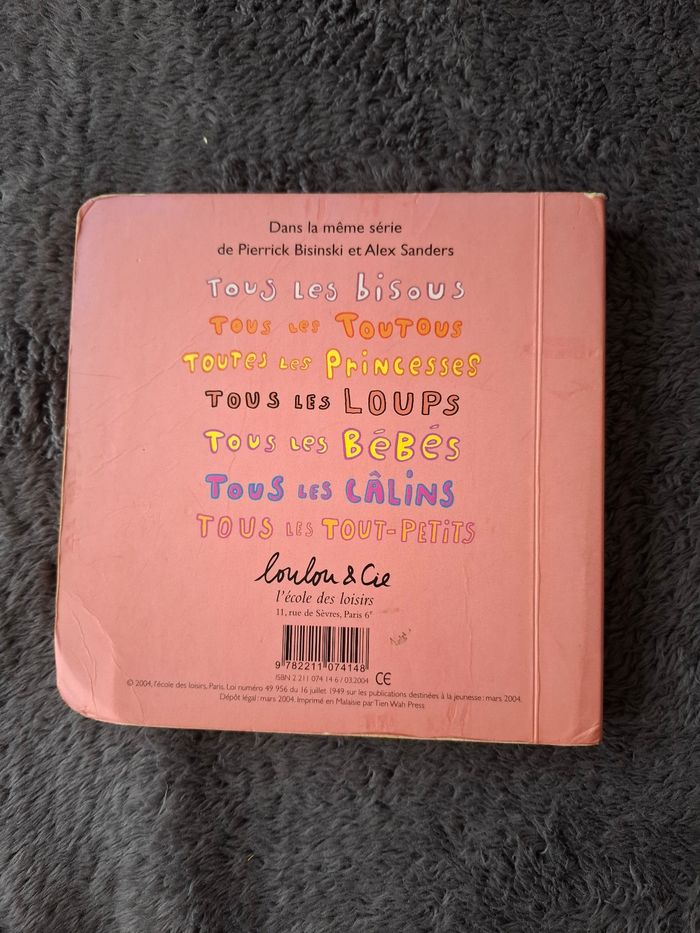 Dans la même série
de Pierrick Bisinski et Alex Sanders
Tous Les bisous
Tous Les Toutous
Toutes Les Princesses
Tous Les LOUPS
Tous Les Bébés
Tous Les CÂLiNS
TOUS LES TOUT-PETiTS
loulou & Cie
l'école des loisirs
11, rue de Sèvres, Paris 6e
9 782211 074148
ISBN 2 211 074 14 6 / 03.2004 CE
© 2004, l'école des loisirs, Paris. Loi numéro 49 956 du 16 juillet 1949 sur les publications destinées à la jeunesse : mars 2004.
Dépôt légal : mars 2004. Imprimé en Malaisie par Tien Wah Press